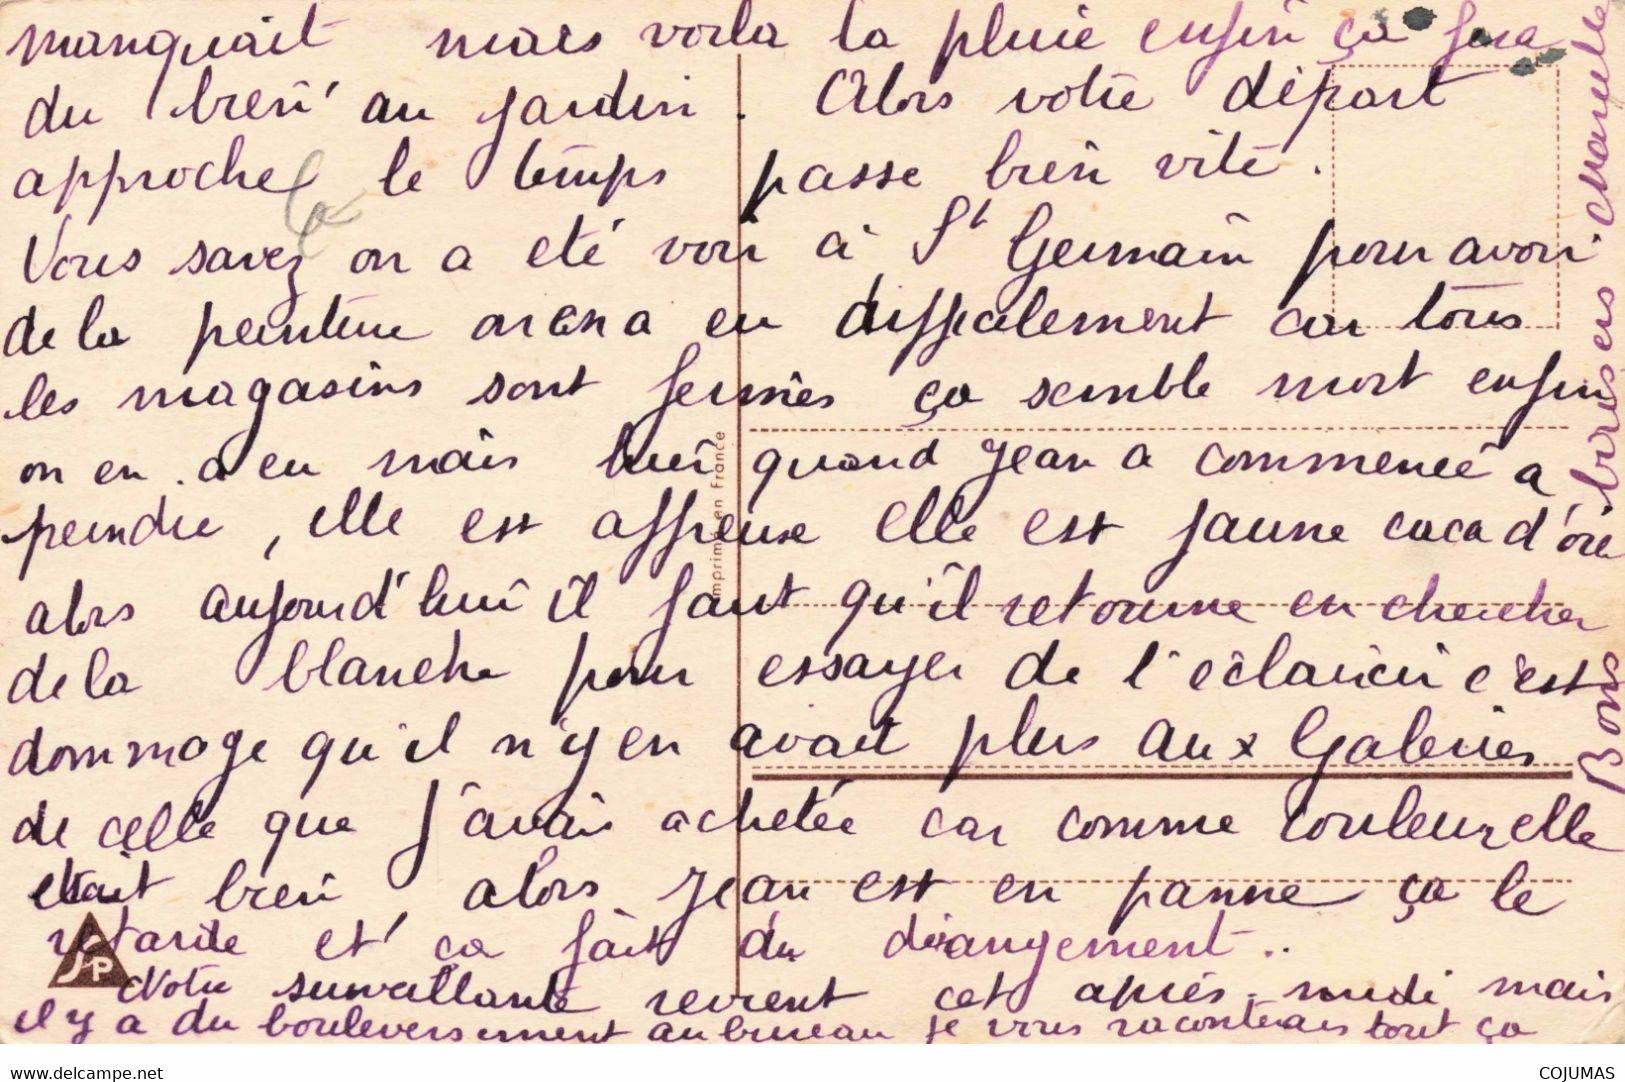 manquait mais voila la pluie enfin ça fera
du bien au jardin. Alors votre départ
approche le temps passe bien vite.
Vous savez on a eté voir à St Germain pour avoir
de la peinture on en a eu difficilement car tous
les magasins sont fermés ça semble mort enfin
on en a eu mais hier quand Jean a commencé a
peindre, elle est affreuse elle est jaune caca d'oie
alors aujourd'hui il faut qu'il retourne en chercher
de la blanche pour essayer de l'éclaircir c'est
dommage qu'il n'y en avait plus aux Galeries
de celle que j'avais achetée car comme couleur elle
etait bien alors Jean est en panne ça le
retarde et ça fait du dérangement..
Notre surveillante revient cet après-midi mais
il y a du bouleversement au bureau je vous raconterais tout ça
Bons
baisers
Imprimé en France
SP
delcampe.net
COJUMAS